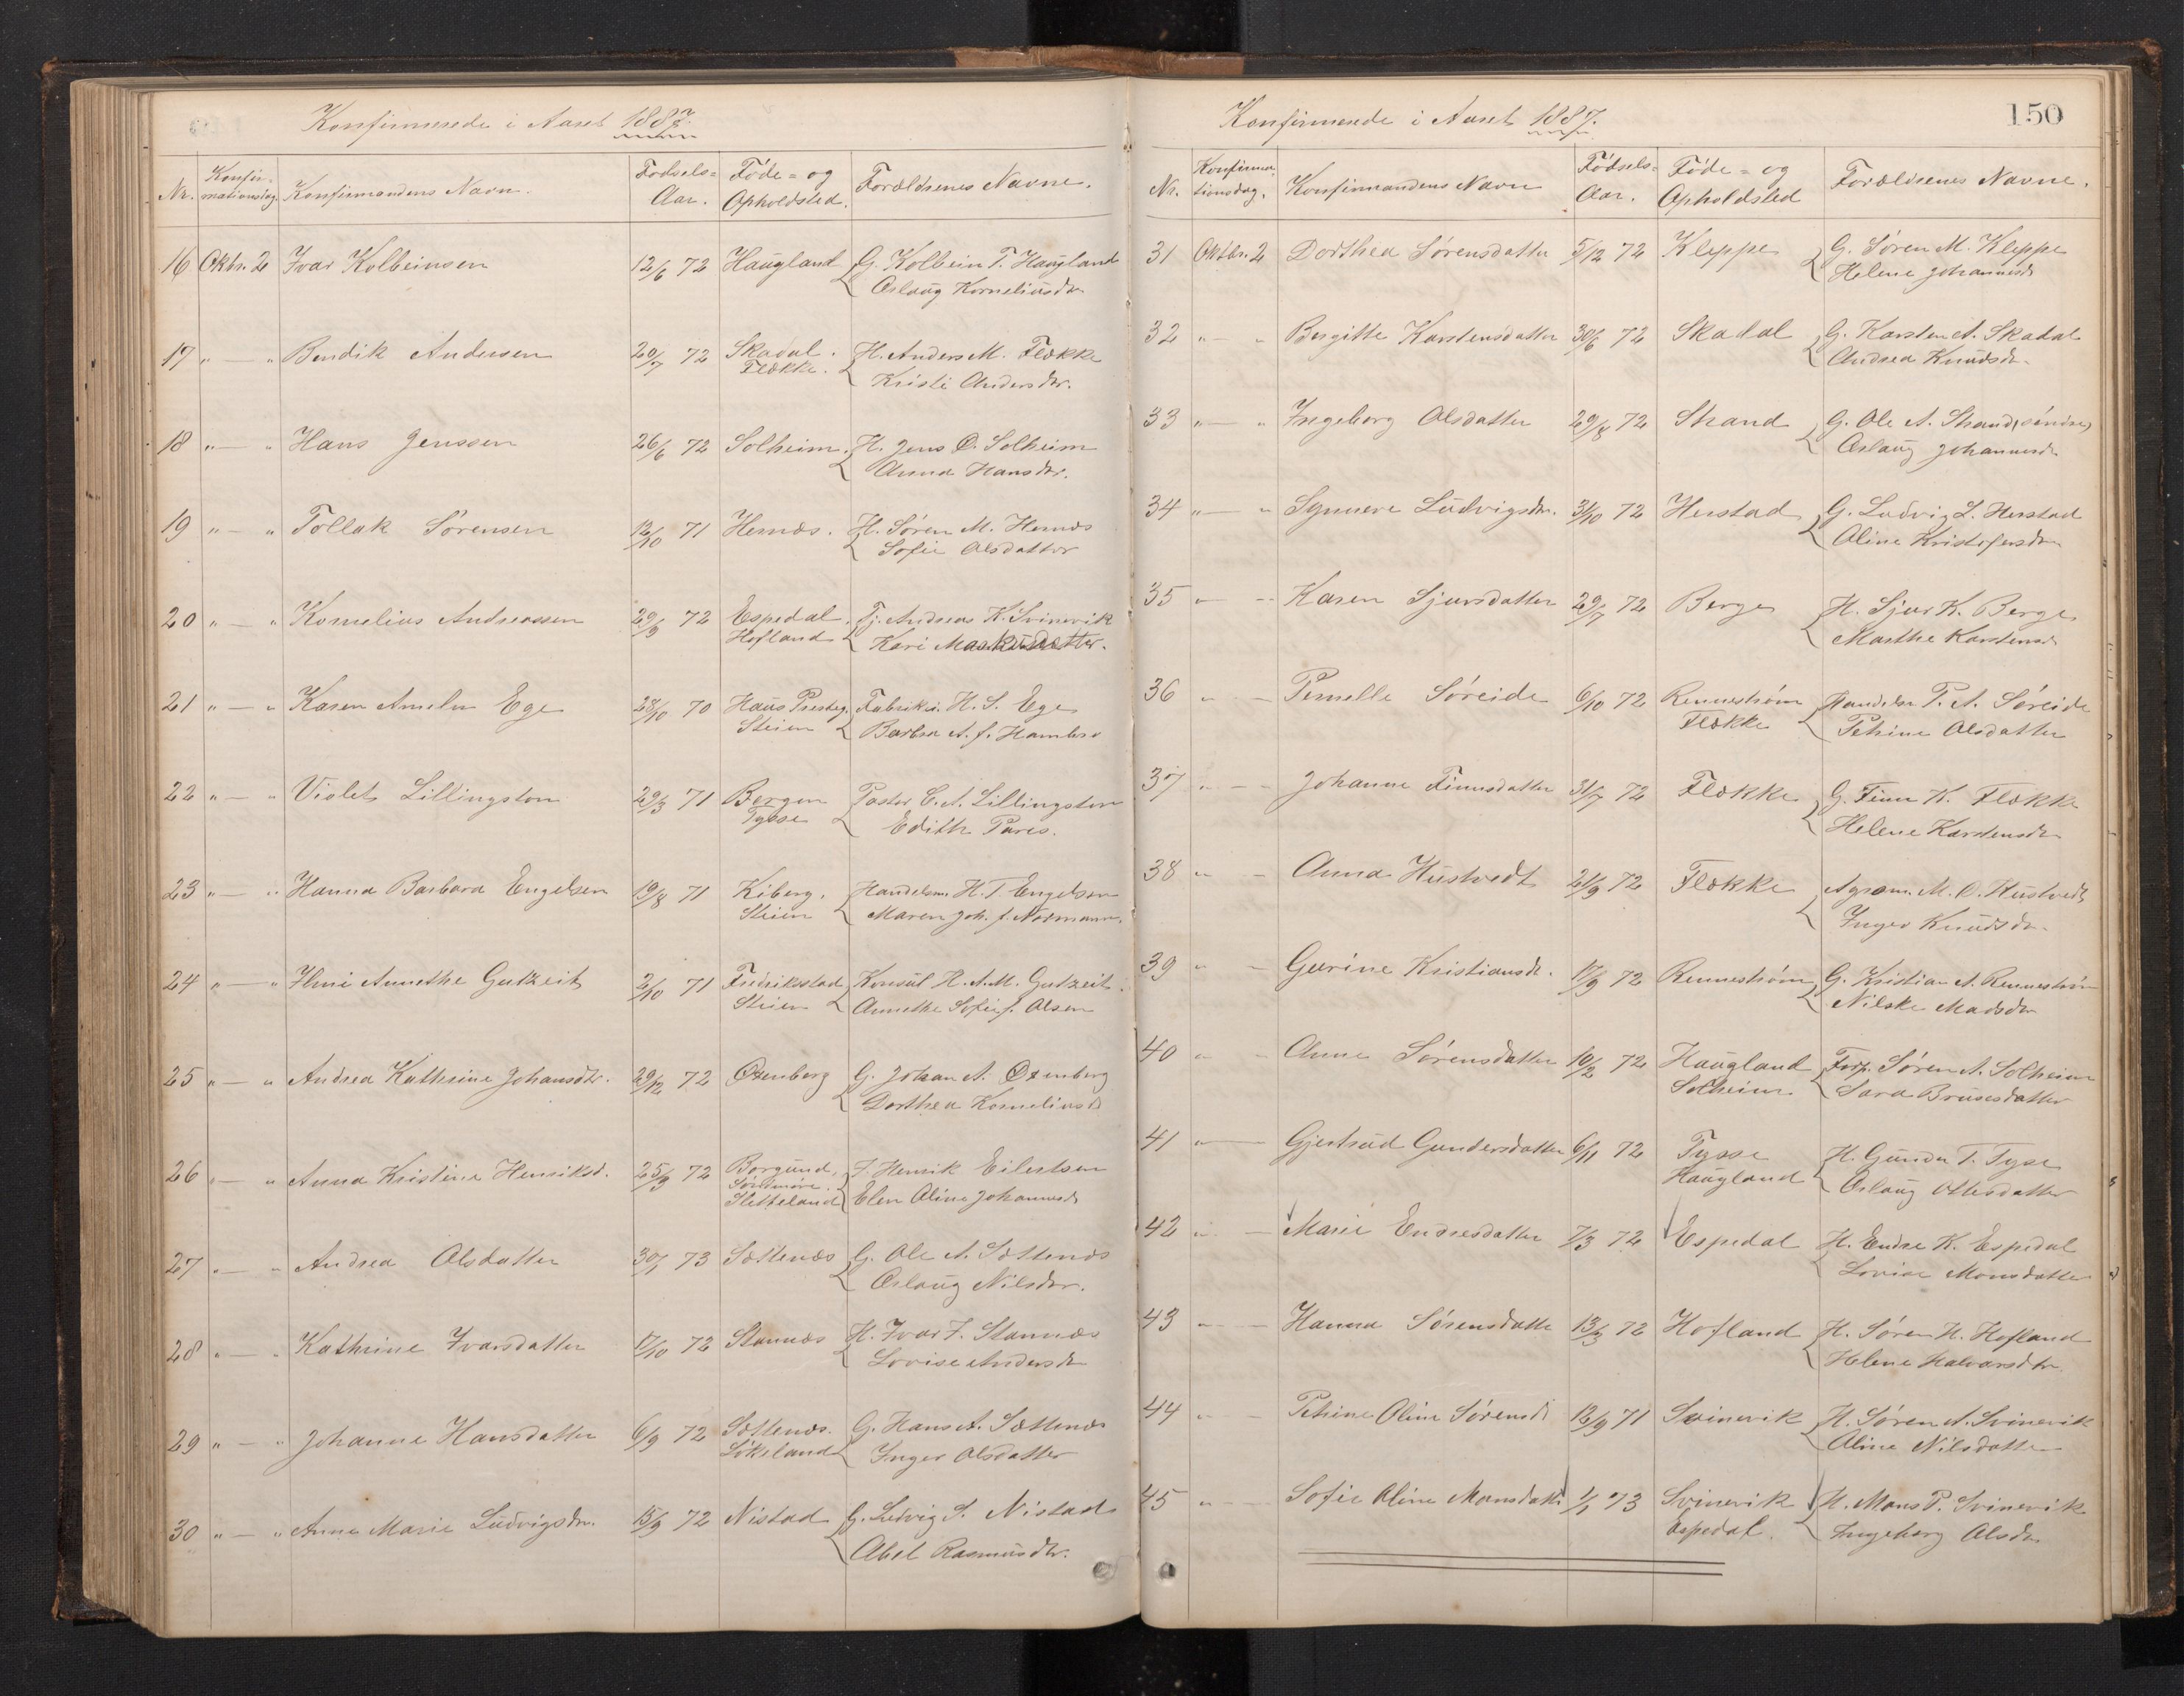 Konfirmerede i Aaret 1887.
Nr. Konfir-mationsdag. Konfirmandens Navn. Fødsels-Aar. Føde- og Opholdsted. Forældrenes Navne.
16 Oktbr. 2 Ivar Kolbeinsen 12/6 72 Haugland G. Kolbein T. Haugland
Oslaug Korneliusdr.
17 " — " Bendik Andersen 20/7 72 Skadal. H. Anders M. Fløkke
Fløkke. Kristi Andersdr.
18 " — " Hans Jenssen 26/6 72 Solheim. H. Jens O. Solheim
Anna Hansdr.
19 " — " Tollak Sørensen 12/10 71 Hernæs. H. Søren M. Hernæs
Sofie Olsdatter
20 " — " Kornelius Andreassen 29/9 72 Espedal. Tj. Andreas K. Svinevik
Hofland Kari
21 " — " Karen Ameln Ege 28/10 70 Haus Presteg. Fabrikei. H. S. Ege
Steien Barbra A. f. Hambro
22 " — " Violet Lillingston 29/3 71 Bergen Pastor C. A. Lillingston
Tysse Edith Pares.
23 " — " Hanna Barbara Engelsen 19/8 71 Kiberg. Handelsm. H. T. Engelsen
Steien Maren Joh. f. Normann.
24 " — " Annethe Gutzeit 2/10 71 Fredriksstad Konsul H. A. M. Gutzeit.
Steien Annethe Sofie f. Olsen
25 " — " Andrea Kathrine Johansdtr. 29/12 72 Oxenberg G. Johan A. Oxenberg
Dorthea Korneliusd
26 " — " Anna Kristine Henriksd. 25/9 72 Borgund, F. Henrik Eilertsen
Søndmøre.
Sletteland Elen Oline Johannesd
27 " — " Andrea Olsdatter 30/1 73 Sættenæs G. Ole A. Sættenæs
Oslaug Nilsdtr.
28 " — " Kathrine Ivarsdatter 17/10 72 Stamnæs H. Ivar J. Stamnæs
Lovise Andersdr
29 " — " Johanne Hansdatter 6/9 72 Sættenæs. G. Hans A. Sættenæs
Løkeland Inger Olsdatter
30 " — " Anne Marie Ludvigsdr. 15/9 72 Nistad G. Ludvig S. Nistad
Abel Rasmusdtr.
150
Konfirmerede i Aaret 1887.
Nr. Konfirma-tionsdag. Konfirmandens Navn Fødsels-Aar. Føde- og Opholdsted Forældrenes Navne.
31 Oktbr. 2 Dorthea Sørensdatter 5/12 72 Kleppe G. Søren M. Kleppe
Helene Johannesd
32 " — " Bergitte Karstensdatter 30/6 72 Skadal G. Karsten A. Skadal
Andrea Knudsdr.
33 " — " Ingeborg Olsdatter 29/8 72 Strand G. Ole A. Strand, søndre
Oslaug Johannesd
34 " — " Synneve Ludvigsdr. 31/10 72 Herstad G. Ludvig L. Herstad
Oline Kristofersdr
35 " — " Karen Sjursdatter 29/7 72 Berge H. Sjur K. Berge
Marthe Karstensd
36 " — Pernelle Søreide 6/10 72 Rennestrøm Handelsm P. A. Søreide
Fløkke Petrine Olsdatter
37 " — Johanne Finnsdatter 31/7 72 Fløkke G. Finn K. Fløkke
Helene Karstensdr
38 " — Anna Hustvedt 21/9 72 Fløkke Agrom. M. O. Hustvedt
Inger Knudsdr.
39 " — Gurine Kristiansdr. 17/9 72 Rennestrøm G. Kristian A. Rennestrøm
Nilske Madsdr
40 " — Anne Sørensdatter 10/2 72 Haugland Forp. Søren A. Solheim
Solheim Sara Brusesdatter
41 " — Gjertrud Gundersdatter 6/11 72 Tysse H. Gunder T. Tysse
Haugland Oslaug Ottesdatter
42 " — Marie Endresdatter 7/3 72 Espedal H. Endre K. Espedal
Lovise Monsdatter
43 " — Hanna Sørensdatter 13/9 72 Hofland H. Søren H. Hofland
Helene Halvorsdtr
44 " — Petrine Oline Sørensd 12/9 71 Svinevik H. Søren A. Svinevik
Oline Nilsdatter
45 " — Sofie Oline Monsdatter 1/1 73 Svinevik H. Mons P. Svinevik
Espedal. Ingeborg Olsdr